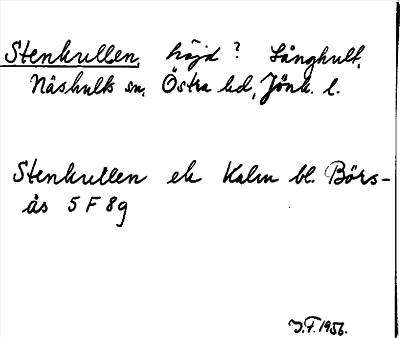 Stenkullen, höjd? Långhult,
Näshults sn, Östra hd, Jönk. l.
Stenkullen ek Kalm bl. Börs-
ås 5 F 8g
J.F. 1956.